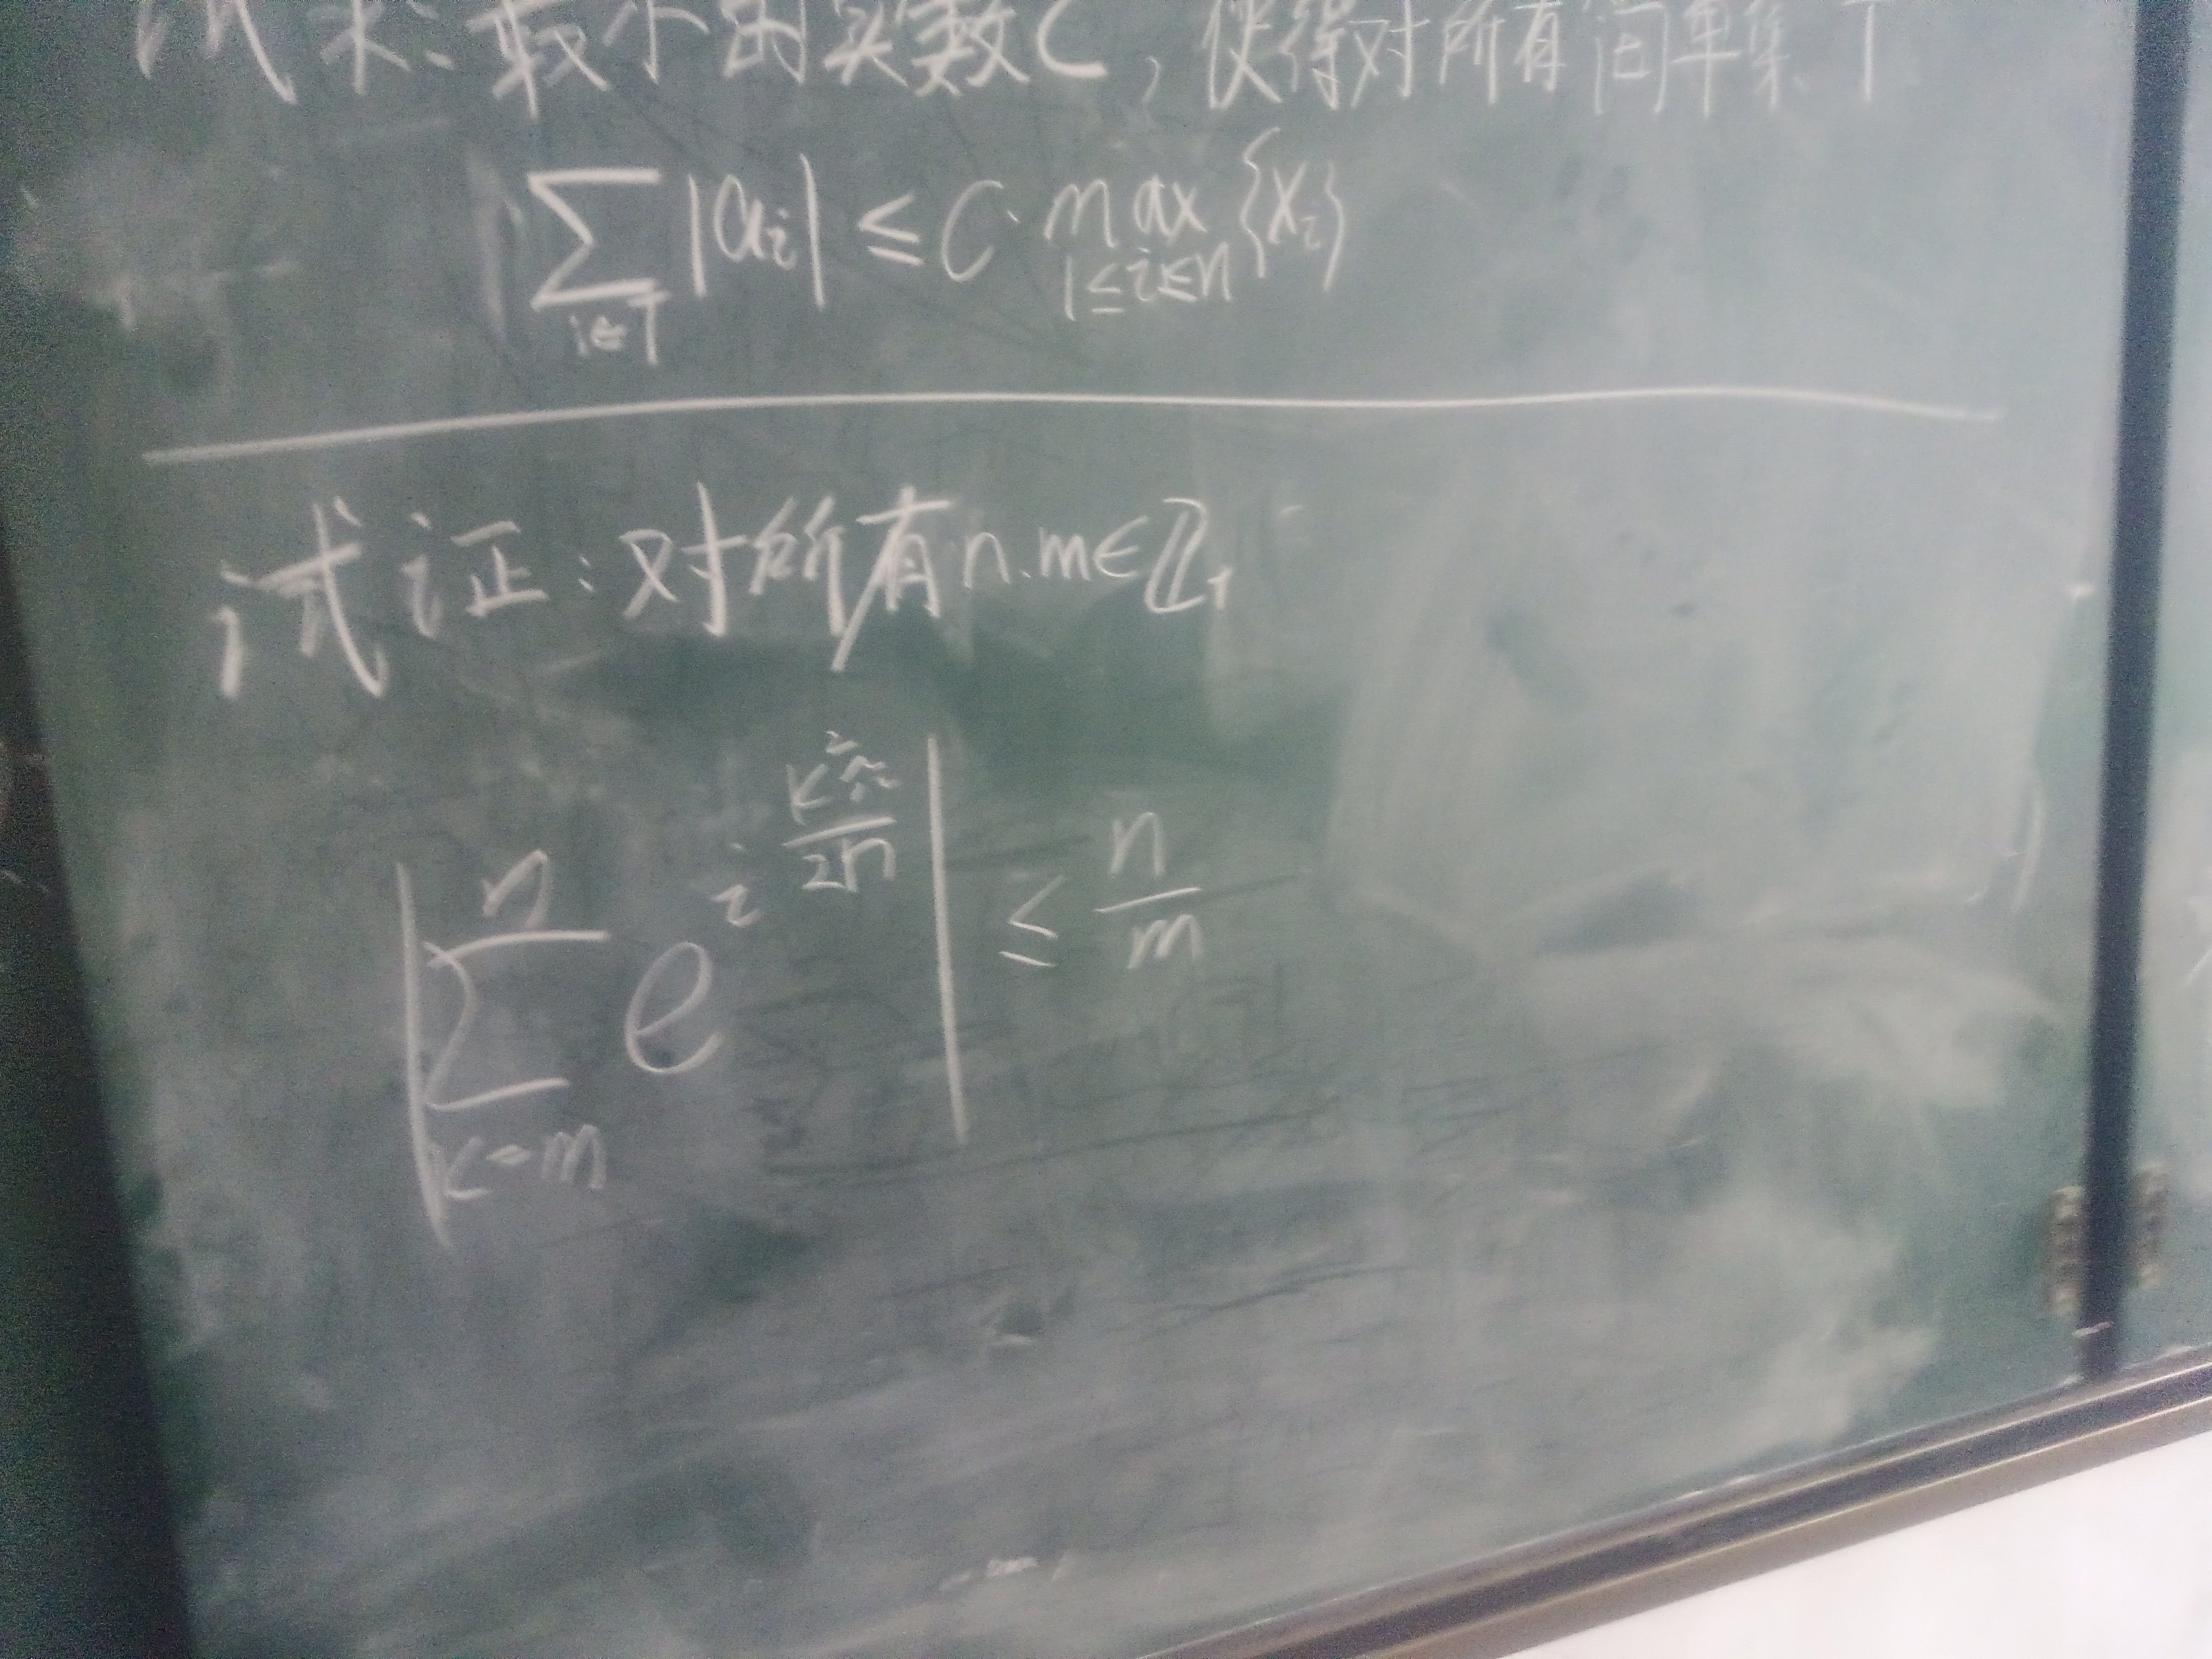 试求:最小的实数C,使得对所有简单集T
∑_{i∈T} |a_i| ≤ C·max_{1≤i≤n}{x_i}
试证:对所有n.m∈ℤ₊
|∑_{k=m}^{n} e^{i k²π/2n}| ≤ n/m